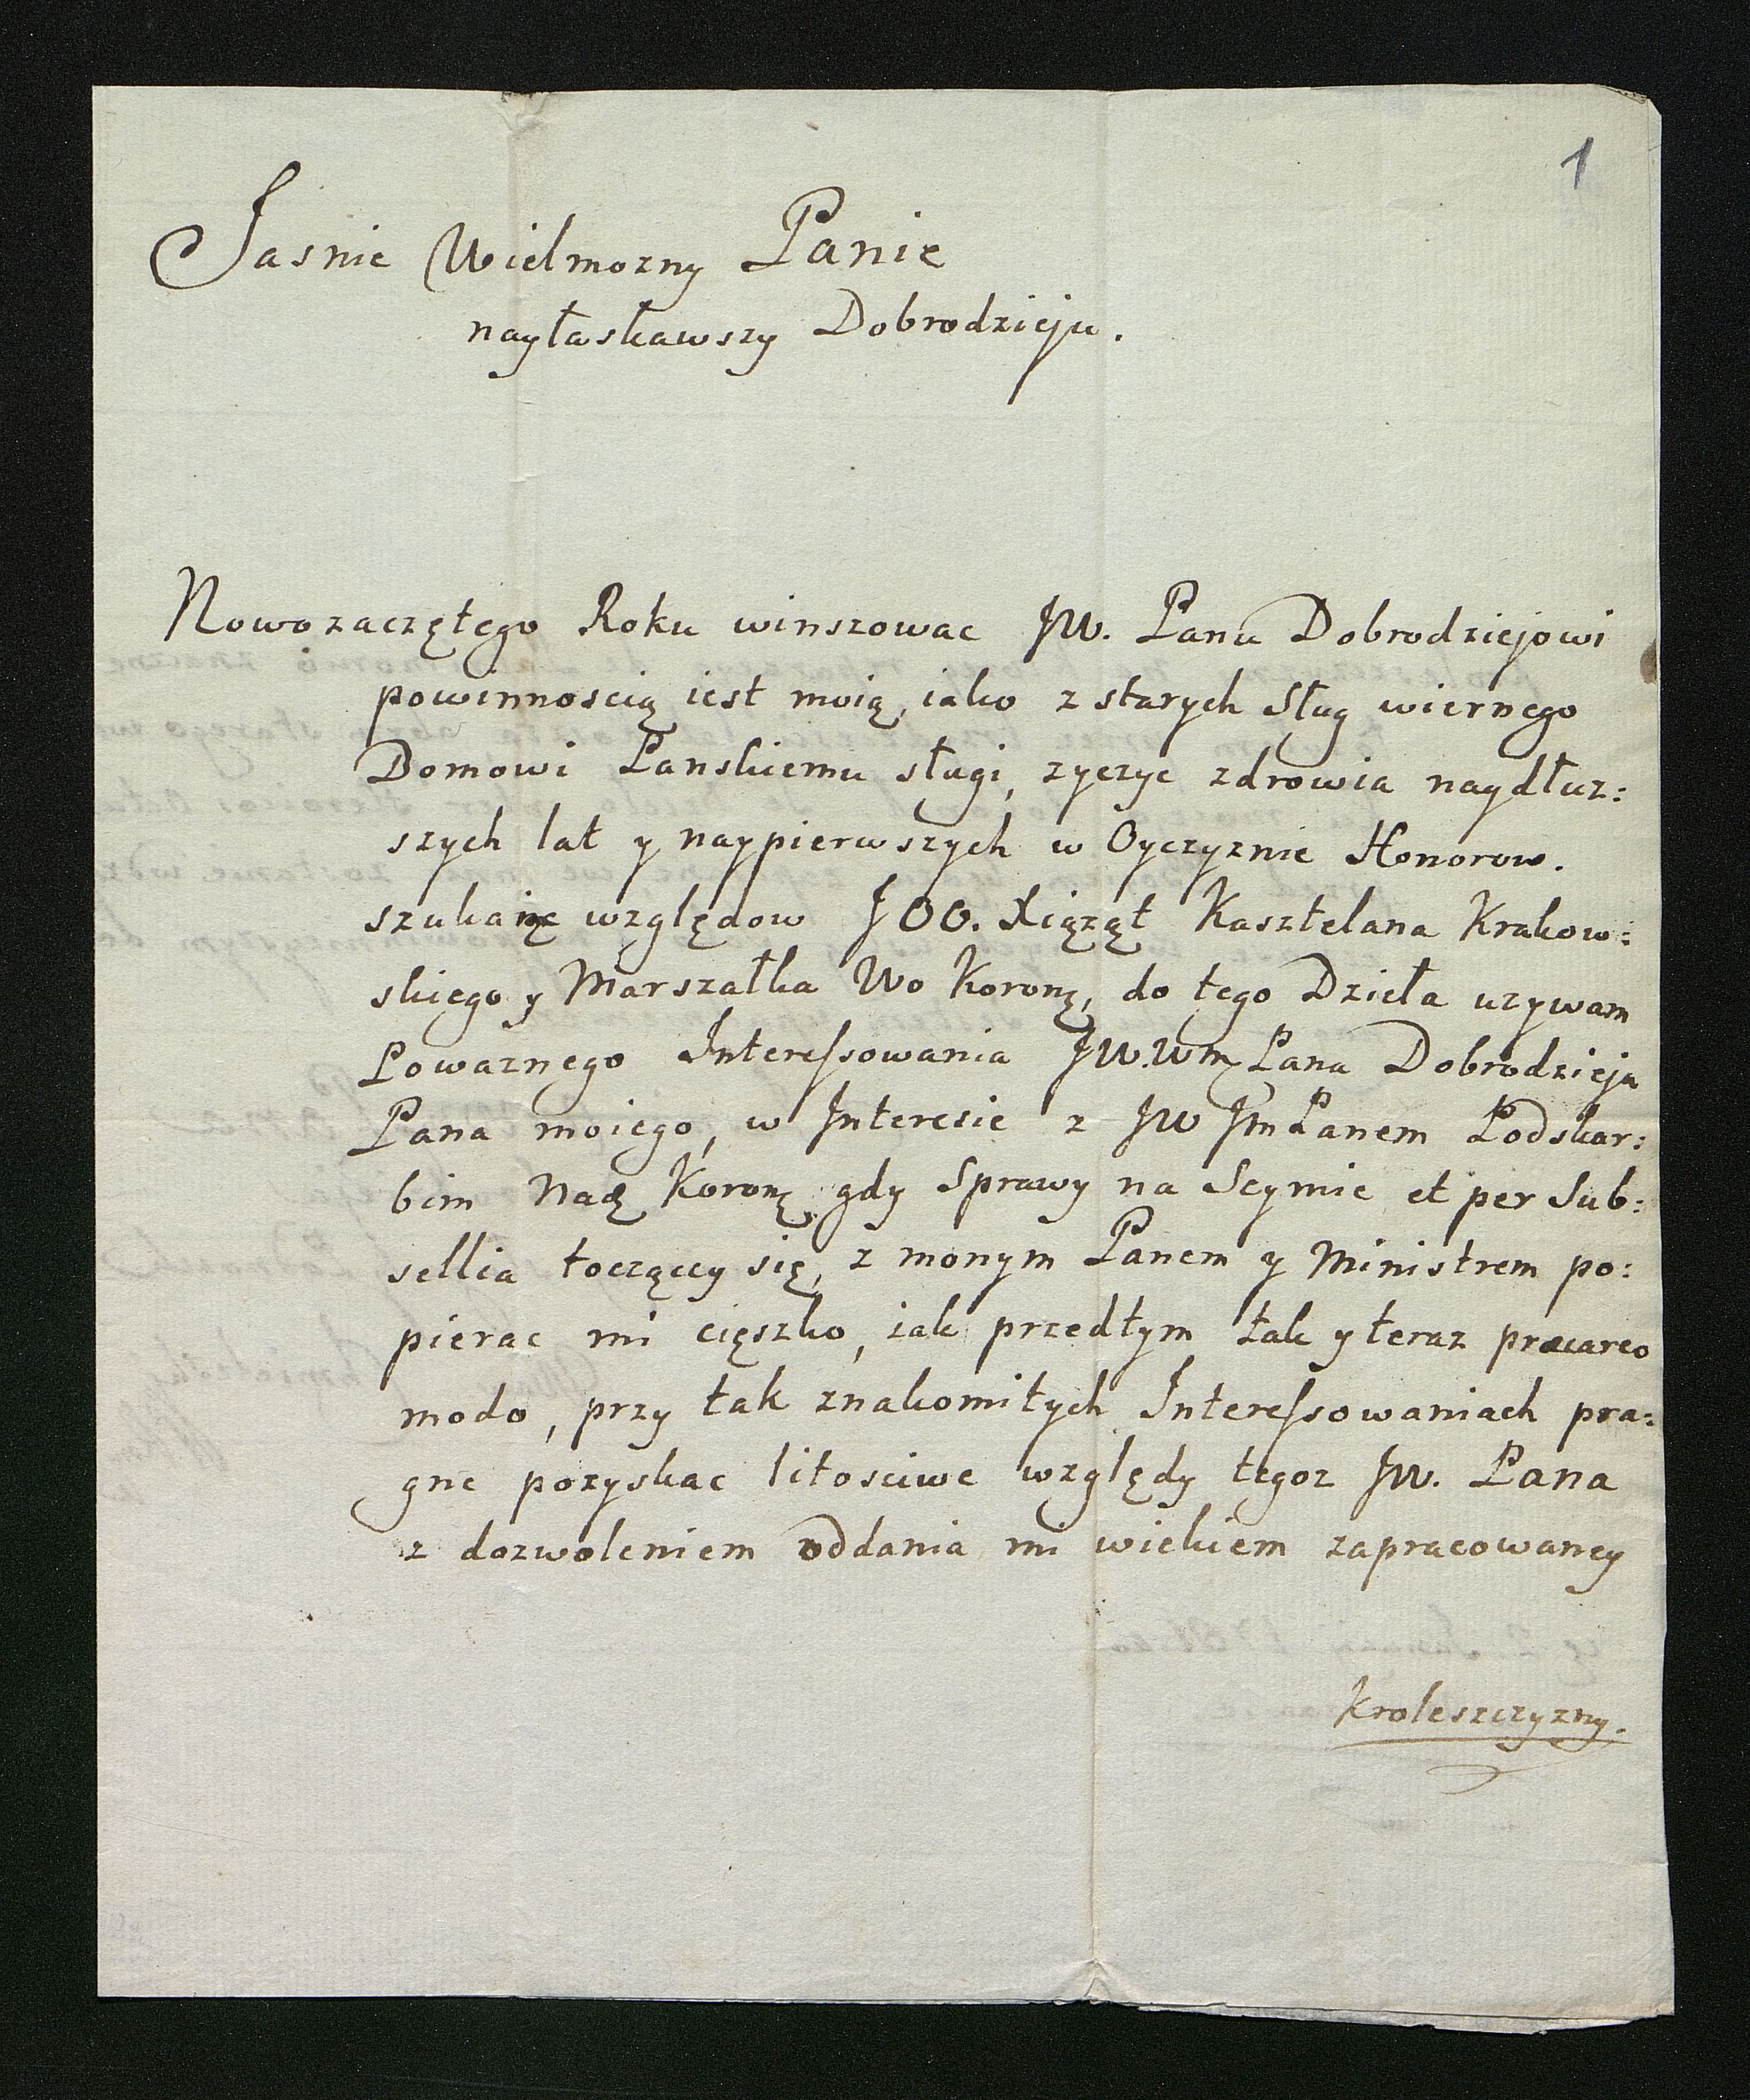 1
Jasnie Wielmozny Panie
nayłaskawszy Dobrodzieju.
Nowozaczętego Roku winszowac JW. Panu Dobrodziejowi
powinnoscią iest moią, iako z starych Sług wiernego
Domowi Panskiemu sługi, zyczyc zdrowia naydłuz:
szych lat y naypierwszych w Oyczyznie Honorow.
szukaiąc względow JOO. Xiąząt Kasztelana Krakow:
skiego y Marszałka Wo Koronę, do tego Dzieła uzywam
Powaznego Interessowania JW. Wm Pana Dobrodzieja
Pana moiego, w Interesie z JW Jm Panem Podskar:
bim Nadę Koronę gdy Sprawy na Seymie et per Sub:
sellia toczącey się, z monym Panem y Ministrem po:
pierac mi cięszko, iak przedtym tak y teraz precareo
modo, przy tak znakomitych Interessowaniach pra:
gne pozyskac litosciwe względy tegoz JW. Pana
z dozwoleniem oddania mi wiekiem zapracowaney
Kroleszczyzny.